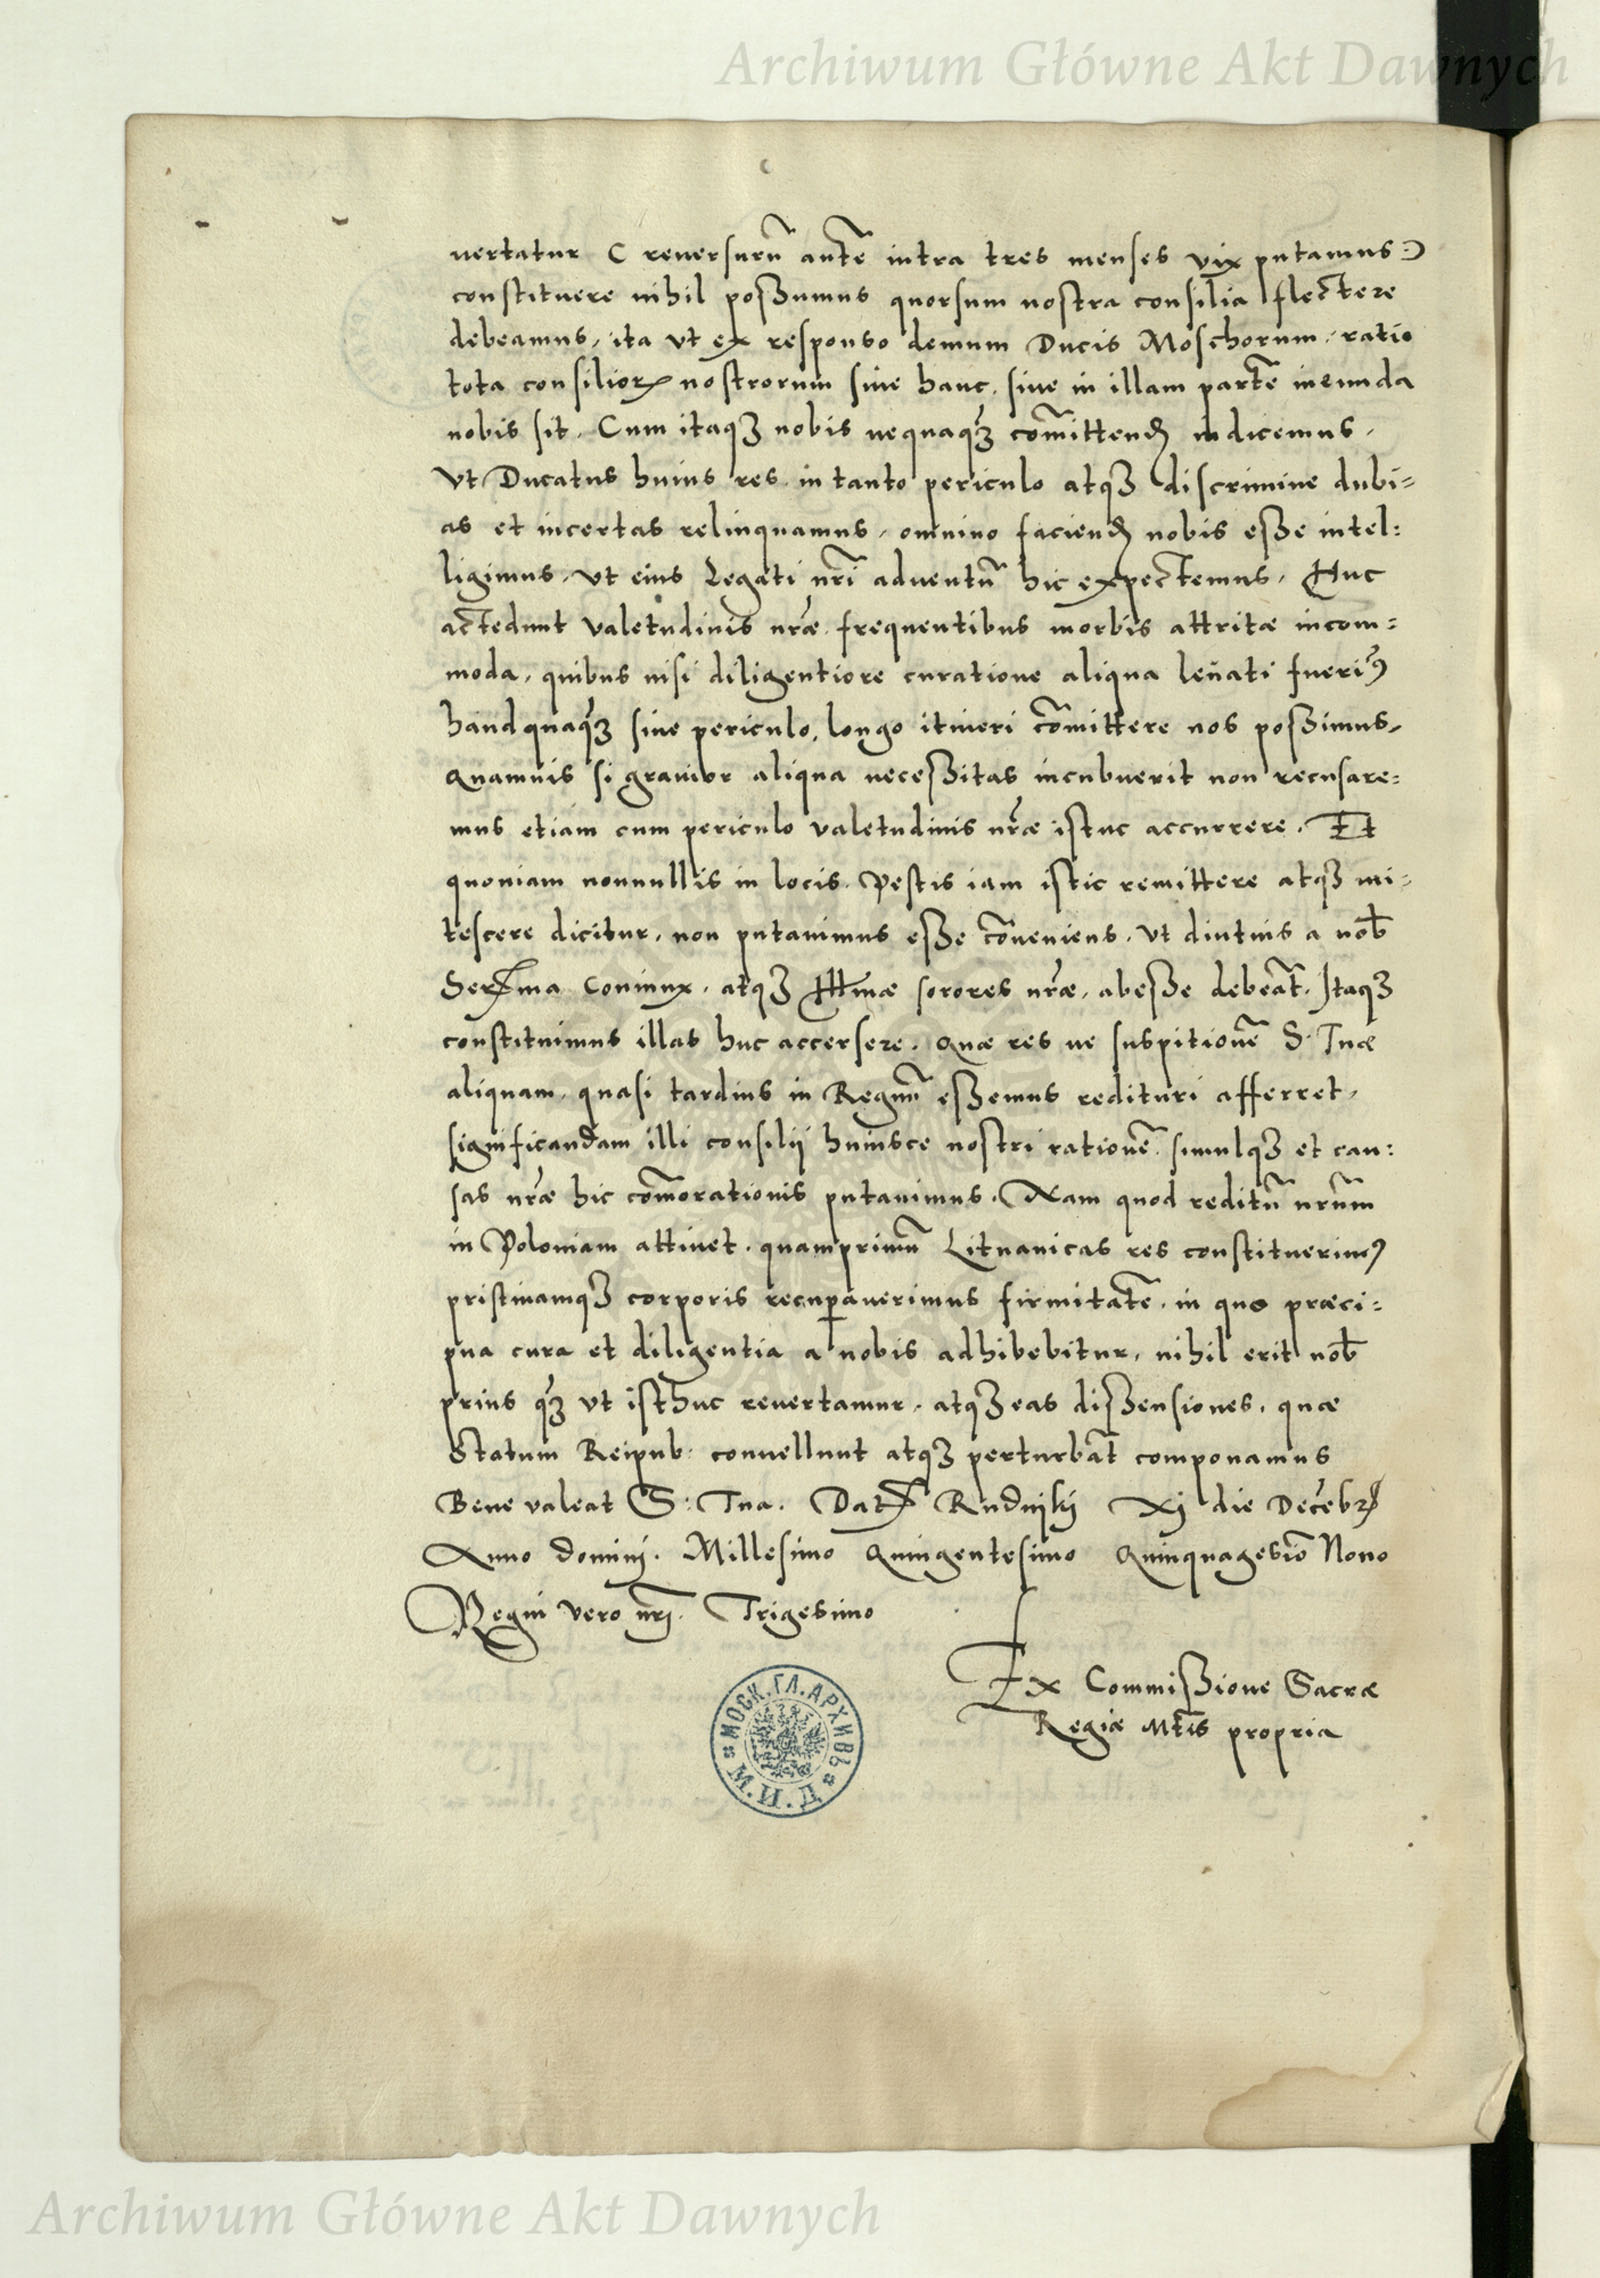 Archiwum Główne Akt Dawnych
uertatur ( reuersurū autē intra tres menses vix putamus :)
constituere nihil possumus quorsum nostra consilia flectere
debeamus, ita vt ex responso demum Ducis Moschorum, ratio
tota consilioꝝ nostrorum siue hanc, siue in illam partē ineunda
nobis sit. Cum itaqꝫ nobis nequaqꝫ̃ com̄ittendꝫ iudicemus,
Vt Ducatus huius res in tanto periculo atqꝫ discrimine dubi=
as et incertas relinquamus, omnino faciendꝫ nobis esse intel:
ligimus, vt eius Legati nr̄i aduentū hic expectemus. Huc
accedunt valetudinis nr̄æ frequentibus morbis attritæ incom=
moda, quibus nisi diligentiore curatione aliqua leuati fuerimꝰ
haudquaqꝫ̃ sine periculo, longo itineri com̄ittere nos possimus,
Quamuis si grauior aliqua necessitas incubuerit non recusare=
mus etiam cum periculo valetudinis nr̄æ istuc accurrere. Et
quoniam nonnullis in locis Pestis iam istic remittere atqꝫ mi=
tescere dicitur, non putauimus esse cōueniens, vt diutius a nob̄
Serma Coniunx, atqꝫ Illmæ sorores nr̄æ, abesse debeāt. Itaqꝫ
constituimus illas huc accersere. Quæ res ne suspitionē S. Tuæ
aliquam, quasi tardius in Regnū essemus redituri afferret,
significandam illi consilij huiusce nostri rationē simulqꝫ et cau:
sas nr̄æ hic com̄orationis putauimus. Nam quod reditū nr̄um
in Poloniam attinet, quamprimū Lituanicas res constituerimꝰ
pristinamqꝫ corporis recuꝑauerimus firmitatē, in quo præci=
pua cura et diligentia a nobis adhibebitur, nihil erit nob̄
prius qꝫ̃ vt isthuc reuertamur, atqꝫ eas dissensiones, quæ
Statum Reipub. conuellunt atqꝫ perturbāt componamus
Bene valeat S: Tua. Dat Rudniki Xj die Decēbr
Anno Dominj. Millesimo Quingentesimo Quinquagesīo Nono
Regni vero nr̄j. Trigesimo
Ex Commissione Sacræ
Regiæ Mtis propria
МОСК. ГЛ. АРХИВЪ
М. И. Д.
Archiwum Główne Akt Dawnych